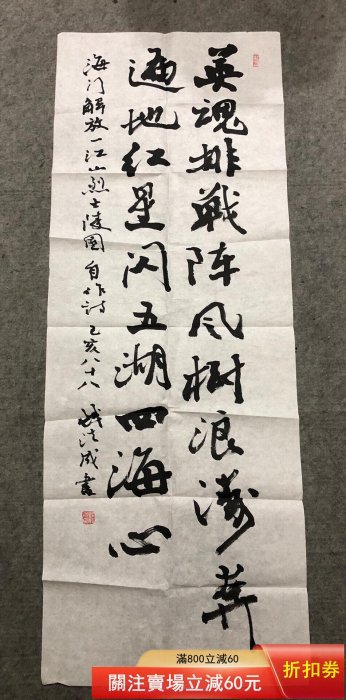 英魂排戰阵风樹浪涛
遍地红星闪五湖四海心
海门解放一江山烈士陵园自作诗己亥八十八钱法成書
滿800立減60
關注賣場立減60元
折扣券